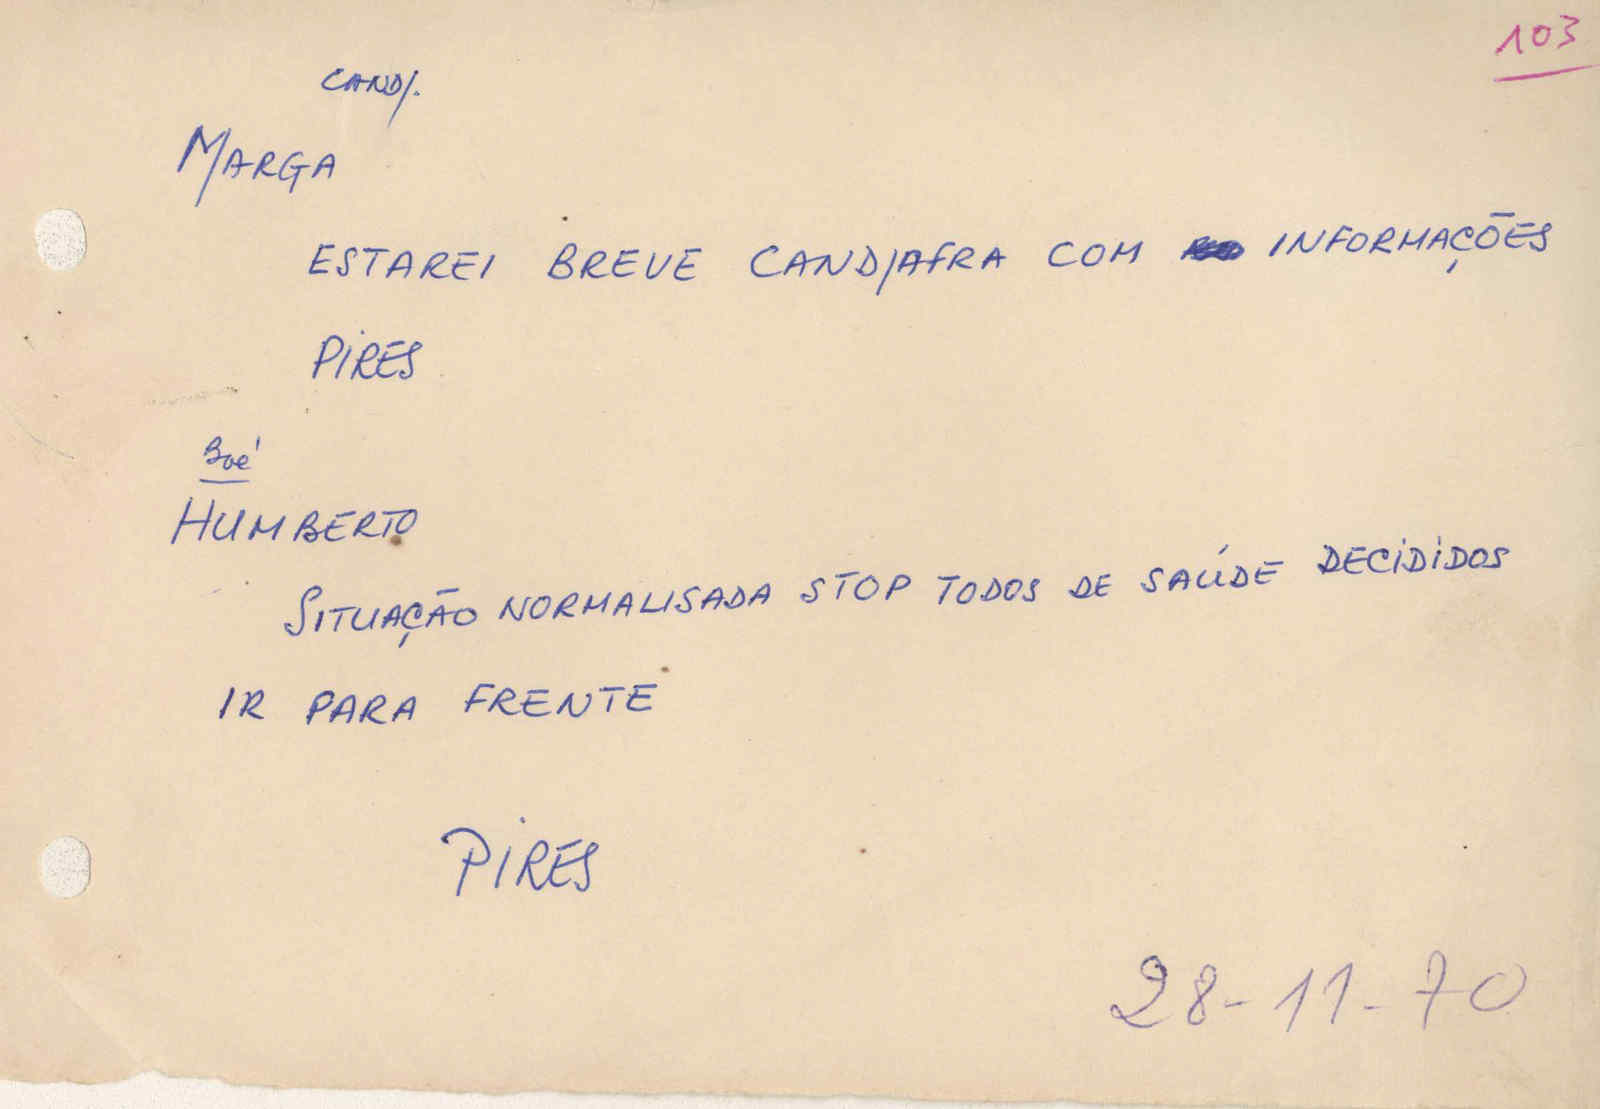 103
CANDJ.
MARGA
ESTAREI BREVE CANDJAFRA COM INFORMAÇÕES
PIRES
Boé
HUMBERTO
SITUAÇÃO NORMALISADA STOP TODOS DE SAÚDE DECIDIDOS
IR PARA FRENTE
PIRES
28-11-70